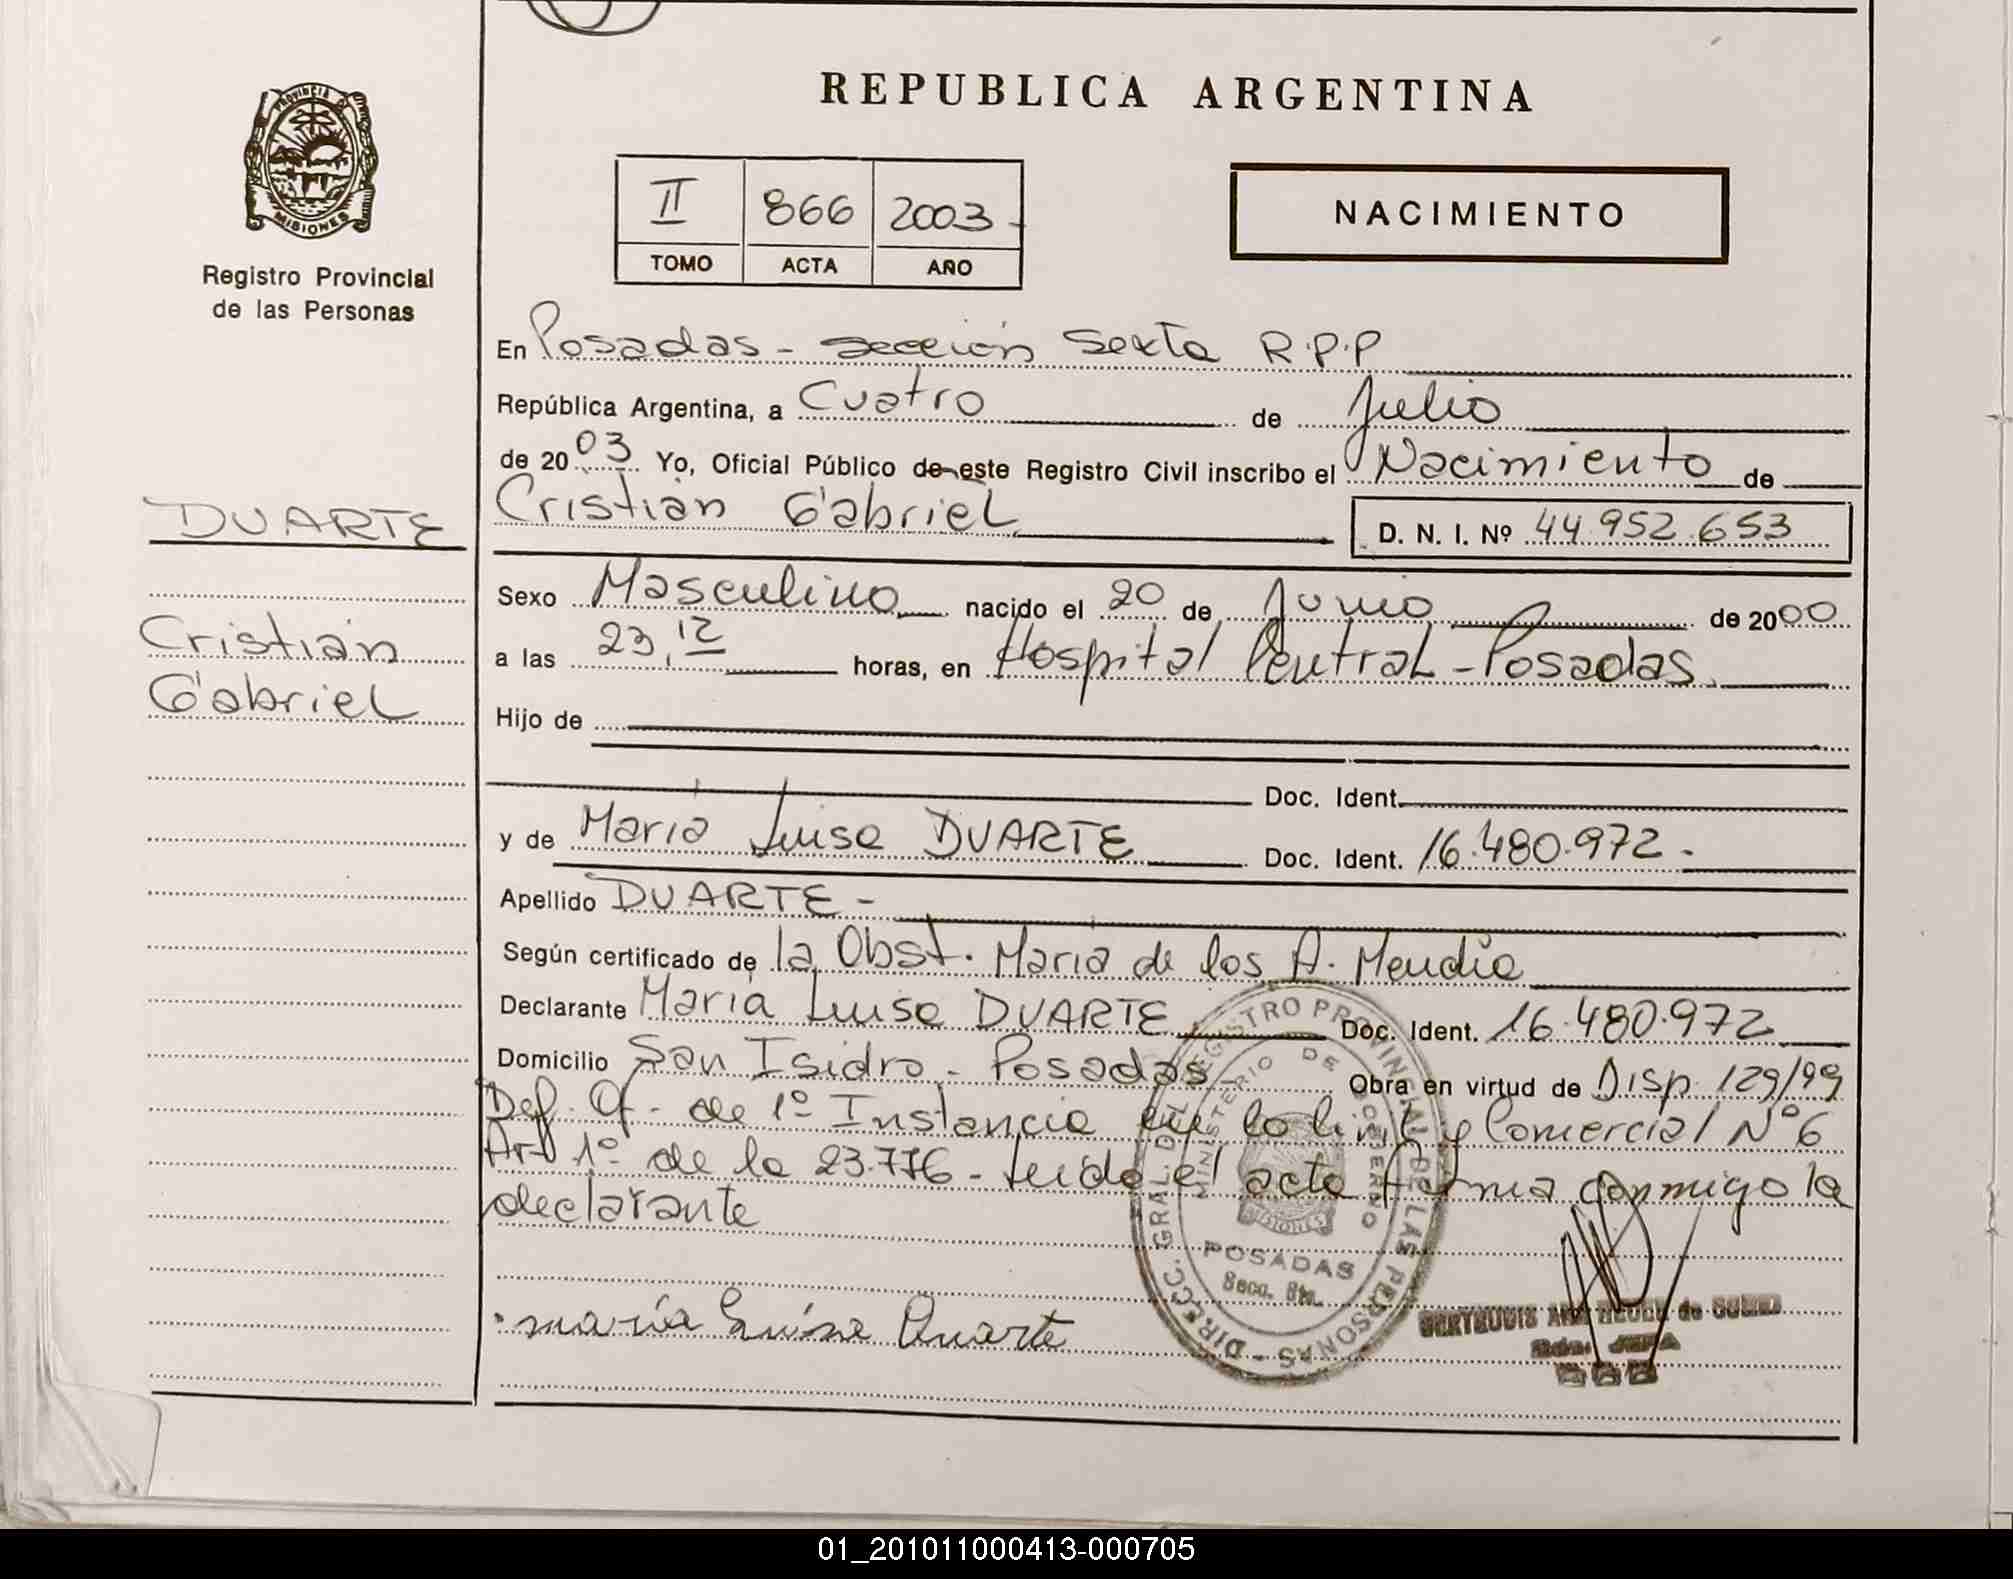 REPUBLICA ARGENTINA
PROVINCIA DE MISIONES
Registro Provincial
de las Personas
II 866 2003
TOMO ACTA AÑO
NACIMIENTO
En Posadas - sección Sexta R.P.P
República Argentina, a Cuatro de Julio
de 2003 Yo, Oficial Público de este Registro Civil inscribo el Nacimiento de
DUARTE
Cristian Gabriel
Cristian Gabriel D. N. I. Nº 44.952.653
Sexo Masculino nacido el 20 de Junio de 2000
a las 23,12 horas, en Hospital Central - Posadas.
Hijo de
Doc. Ident.
y de María Luisa DUARTE Doc. Ident. 16.480.972.-
Apellido DUARTE -
Según certificado de la Obst. María de los A. Mendia
Declarante María Luisa DUARTE Doc. Ident. 16.480.972
Domicilio San Isidro - Posadas Obra en virtud de Disp. 129/99
Def. Of. de 1º Instancia en lo Civil y Comercial Nº 6
Art 1º de la 23.776 - Leido el acta firma conmigo la
declarante
maría Luisa Duarte
DIRECC. GRAL. DEL REGISTRO PROVINCIAL DE LAS PERSONAS
MINISTERIO DE GOBIERNO
MISIONES
POSADAS
Secc. 6ta.
GERTRUDIS de
JEFA
01_201011000413-000705